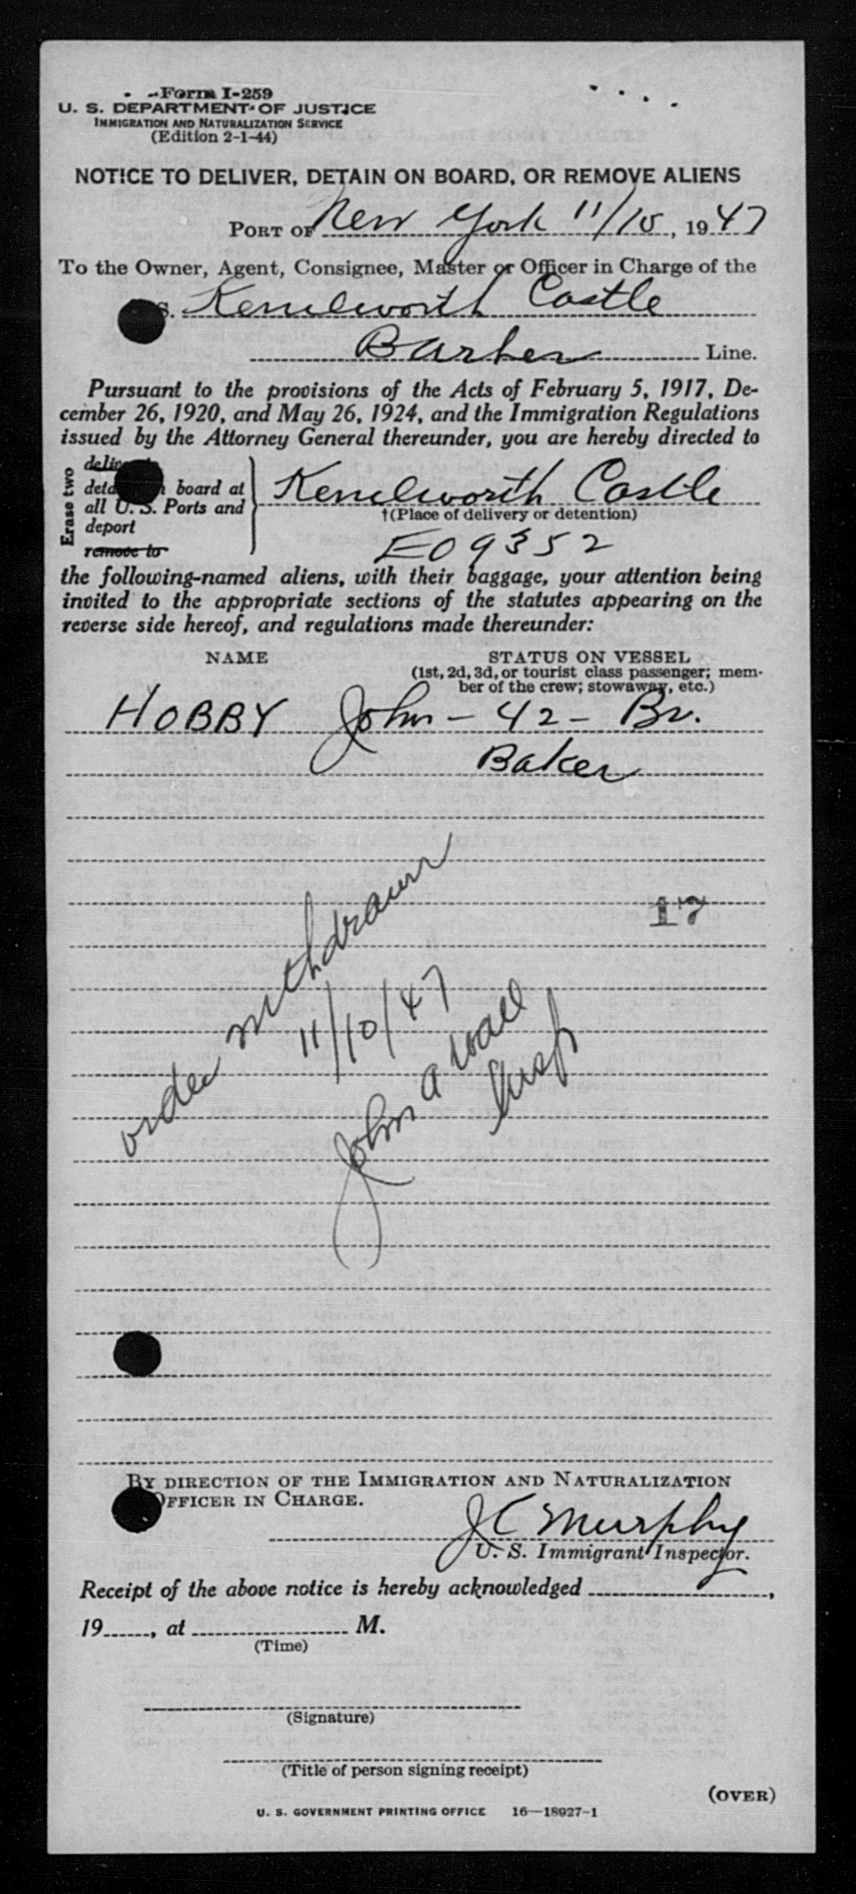 Form I-259
U. S. DEPARTMENT OF JUSTICE
IMMIGRATION AND NATURALIZATION SERVICE
(Edition 2-1-44)
NOTICE TO DELIVER, DETAIN ON BOARD, OR REMOVE ALIENS
PORT OF New York 11/10, 1947
To the Owner, Agent, Consignee, Master or Officer in Charge of the
S. Kenilworth Castle
Barber Line.
Pursuant to the provisions of the Acts of February 5, 1917, De-
cember 26, 1920, and May 26, 1924, and the Immigration Regulations
issued by the Attorney General thereunder, you are hereby directed to
Erase two
board at
all U. S. Ports and
deport
remove to
Kenilworth Castle
†(Place of delivery or detention)
E09352
the following-named aliens, with their baggage, your attention being
invited to the appropriate sections of the statutes appearing on the
reverse side hereof, and regulations made thereunder:
NAME STATUS ON VESSEL
(1st, 2d, 3d, or tourist class passenger; mem-
ber of the crew; stowaway, etc.)
HOBBY John - 42 - Br.
Baker
17
order withdrawn
11/10/47
John A Wall
Insp
BY DIRECTION OF THE IMMIGRATION AND NATURALIZATION
OFFICER IN CHARGE.
J C Murphy
U. S. Immigrant Inspector.
Receipt of the above notice is hereby acknowledged ,
19 , at M.
(Time)
(Signature)
(Title of person signing receipt)
(OVER)
U. S. GOVERNMENT PRINTING OFFICE 16—18927-1